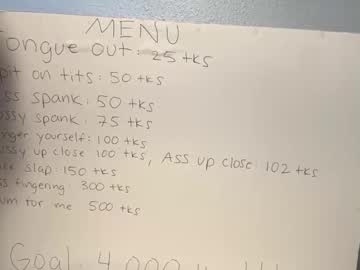 MENU
Tongue out: 25 tks
pit on tits: 50 tks
ss spank: 50 tks
ussy spank: 75 tks
nger yourself: 100 tks
ussy up close 100 tks, Ass up close: 102 tks
slap: 150 tks
fingering: 300 tks
um for me 500 tks
Goal: 4,000